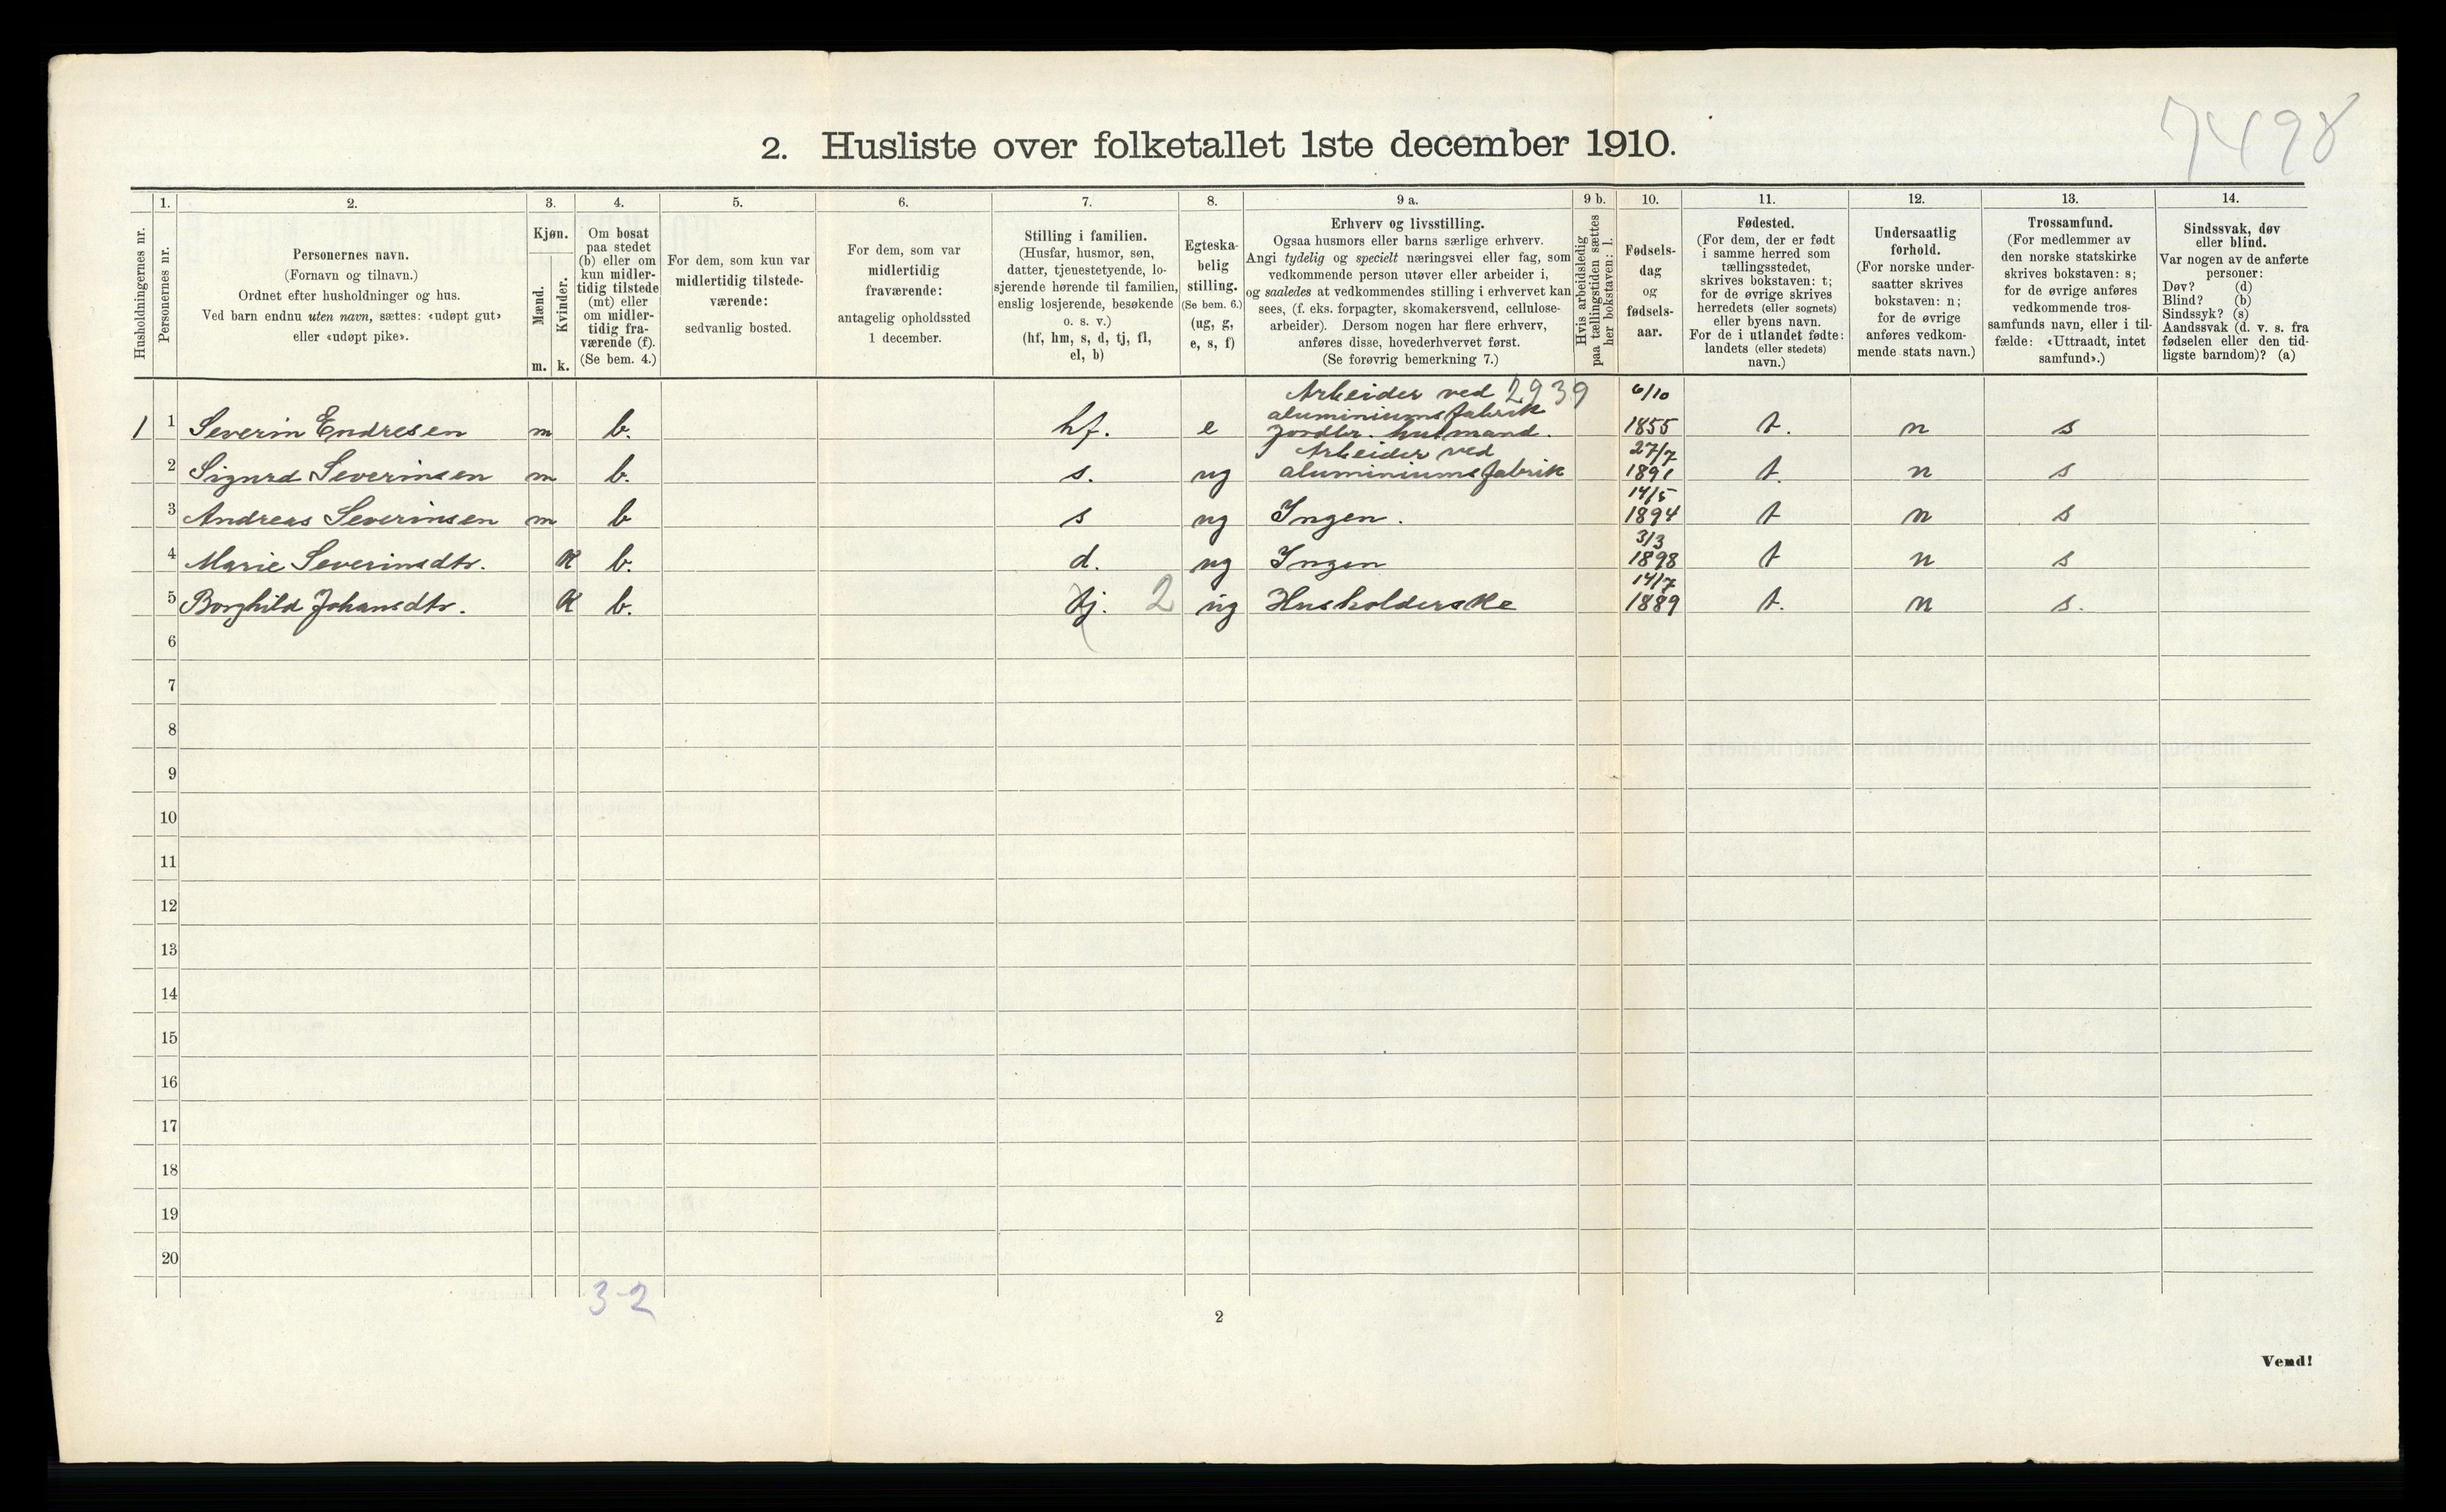 7498
2. Husliste over folketallet 1ste december 1910.
Husholdningernes nr.
1.
Personernes nr.
2.
Personernes navn.
(Fornavn og tilnavn.)
Ordnet efter husholdninger og hus.
Ved barn endnu uten navn, sættes: «udøpt gut»
eller «udøpt pike».
3.
Kjøn.
Mænd.
m.
Kvinder.
k.
4.
Om bosat
paa stedet
(b) eller om
kun midler-
tidig tilstede
(mt) eller
om midler-
tidig fra-
værende (f).
(Se bem. 4.)
5.
For dem, som kun var
midlertidig tilstede-
værende:
sedvanlig bosted.
6.
For dem, som var
midlertidig
fraværende:
antagelig opholdssted
1 december.
7.
Stilling i familien.
(Husfar, husmor, søn,
datter, tjenestetyende, lo-
sjerende hørende til familien,
enslig losjerende, besøkende
o. s. v.)
(hf, hm, s, d, tj, fl,
el, b)
8.
Egteska-
belig
stilling.
(Se bem. 6.)
(ug, g,
e, s, f)
9 a.
Erhverv og livsstilling.
Ogsaa husmors eller barns særlige erhverv.
Angi tydelig og specielt næringsvei eller fag, som
vedkommende person utøver eller arbeider i,
og saaledes at vedkommendes stilling i erhvervet kan
sees, (f. eks. forpagter, skomakersvend, cellulose-
arbeider). Dersom nogen har flere erhverv,
anføres disse, hovederhvervet først.
(Se forøvrig bemerkning 7.)
9 b.
Hvis arbeidsledig
paa tællingstiden sættes
her bokstaven: l.
10.
Fødsels-
dag
og
fødsels-
aar.
11.
Fødested.
(For dem, der er født
i samme herred som
tællingsstedet,
skrives bokstaven: t;
for de øvrige skrives
herredets (eller sognets)
eller byens navn.
For de i utlandet fødte:
landets (eller stedets)
navn.)
12.
Undersaatlig
forhold.
(For norske under-
saatter skrives
bokstaven: n;
for de øvrige
anføres vedkom-
mende stats navn.)
13.
Trossamfund.
(For medlemmer av
den norske statskirke
skrives bokstaven: s;
for de øvrige anføres
vedkommende tros-
samfunds navn, eller i til-
fælde: «Uttraadt, intet
samfund».)
14.
Sindssvak, døv
eller blind.
Var nogen av de anførte
personer:
Døv? (d)
Blind? (b)
Sindssyk? (s)
Aandssvak (d. v. s. fra
fødselen eller den tid-
ligste barndom)? (a)
Arbeider ved 2939 6/10
aluminiumsfabrik
1 1 Severin Endresen m b. hf. e Jordbr. husmand. 1855 t. n s
Arbeider ved 27/7
2 Sigurd Severinsen m b. s. ug aluminiumsfabrik 1891 t. n s
14/5
3 Andreas Severinsen m b s ug Ingen. 1894 t n s
3/3
4 Marie Severinsdtr. K b. d. ug Ingen 1898 t n s
14/7
5 Borghild Johansdtr. K b. tj. 2 ug Husholderske 1889 t. n s.
6
7
8
9
10
11
12
13
14
15
16
17
18
19
20
3-2
2
Vend!